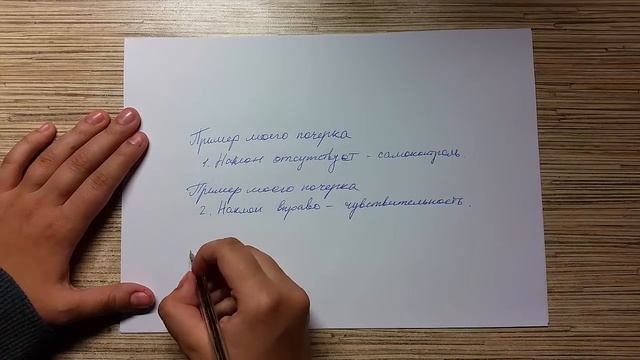 Пример моего почерка
1. Наклон отсутствует - самоконтроль.
Пример моего почерка
2. Наклон вправо - чувствительность.